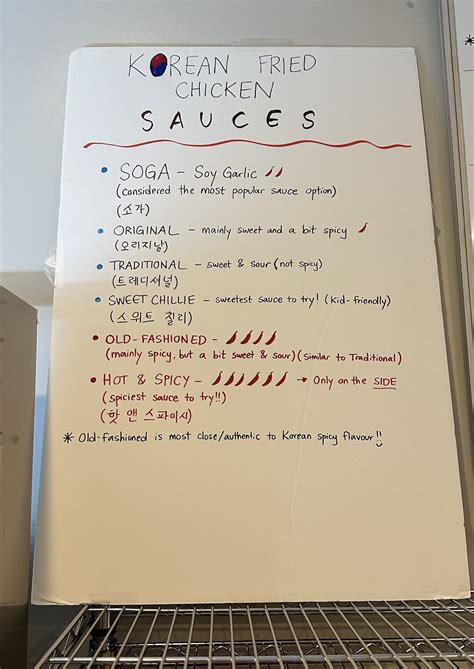 KOREAN FRIED
CHICKEN
SAUCES
SOGA - Soy Garlic
(considered the most popular sauce option)
(소가)
ORIGINAL - mainly sweet and a bit spicy
(오리지날)
TRADITIONAL - sweet & sour (not spicy)
(트레디셔널)
SWEET CHILLIE - sweetest sauce to try! (kid-friendly)
(스위트 칠리)
OLD-FASHIONED -
(mainly spicy, but a bit sweet & sour) (similar to Traditional)
HOT & SPICY - → Only on the SIDE
(spiciest sauce to try!!)
(핫 앤 스파이시)
* Old-fashioned is most close/authentic to Korean spicy flavour!!